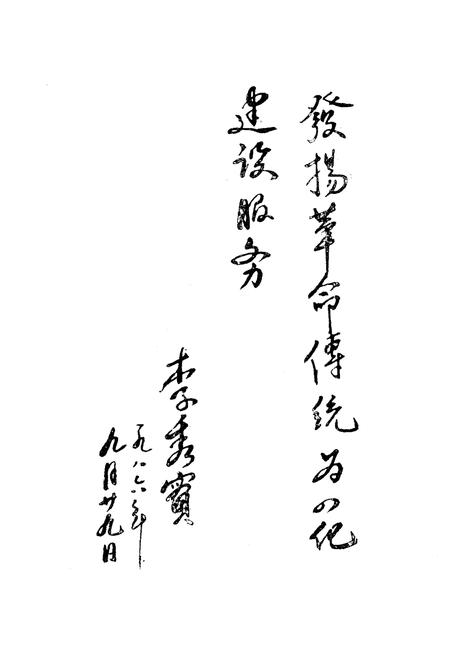 發揚革命傳統为四化
建设服务
李秀賓
一九八六年
九月廿九日